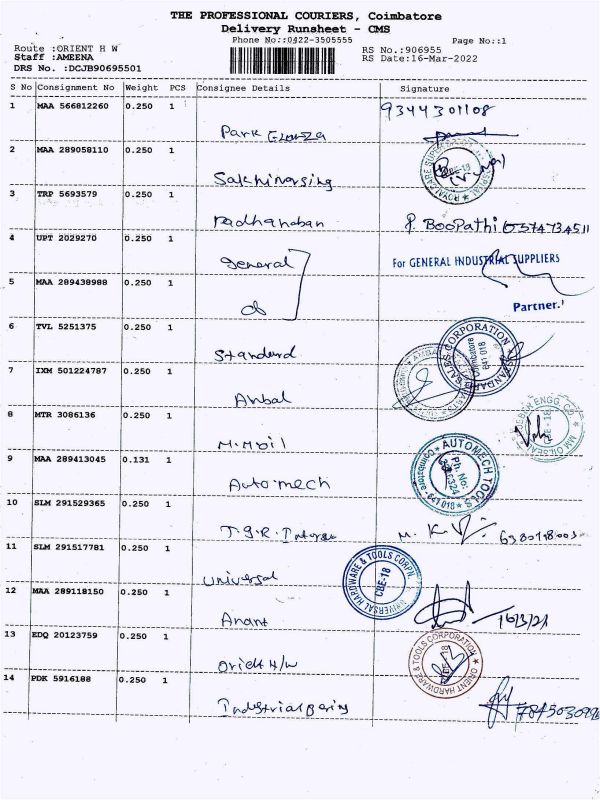 THE PROFESSIONAL COURIERS, Coimbatore
Delivery Runsheet - CMS
Phone No.::0422-3505555
Page No.::1
Route :ORIENT H W
Staff :AMEENA
DRS No. :DCJB90695501
RS No.:906955
RS Date:16-Mar-2022
S No Consignment No Weight PCS Consignee Details Signature
1 MAA 566812260 0.250 1
9344301108
Park
2 MAA 289058110 0.250 1
Sakthinursing
3 TRP 5693579 0.250 1
Padhanaban P. Boopathi
4 UPT 2029270 0.250 1
General
For GENERAL INDUSTRIAL SUPPLIERS
5 MAA 289438988 0.250 1
do
Partner.
6 TVL 5251375 0.250 1
Standard
SALES CORPORATION STANDARD
Coimbatore
641 018
7 IXM 501224787 0.250 1
Anbal
8 MTR 3086136 0.250 1
M.M.Oil
9 MAA 289413045 0.131 1
Automech
AUTOMECH TOOLS Coimbatore - 641 018
Ph: No:
10 SLM 291529365 0.250 1
T.G.R.
11 SLM 291517781 0.250 1
Universal
UNIVERSAL HARDWARE & TOOLS CORPN.
CBE-18
12 MAA 289118150 0.250 1
Anant
13 EDQ 20123759 0.250 1
Orient H/W
ORIENT HARDWARE & TOOLS CORPORATION
14 PDK 5916188 0.250 1
Industrial